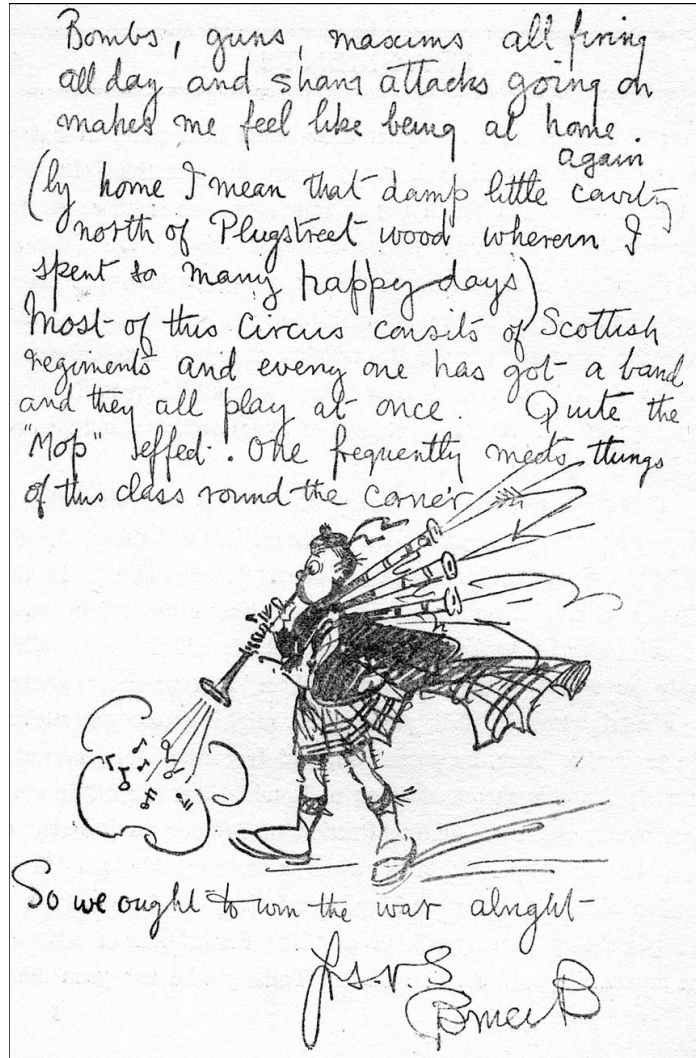 Bombs, guns, maxums all firing
all day and sham attacks going on
makes me feel like being at home.
again
(by home I mean that damp little cavity
north of Plugstreet wood wherein I
spent so many happy days)
Most of this circus consits of Scottish
regiments and every one has got a band
and they all play at once. Quite the
"Mop" effect. One frequently meets things
of this class round the corner
So we ought to win the war alright
Yrs v. S
Bruce B